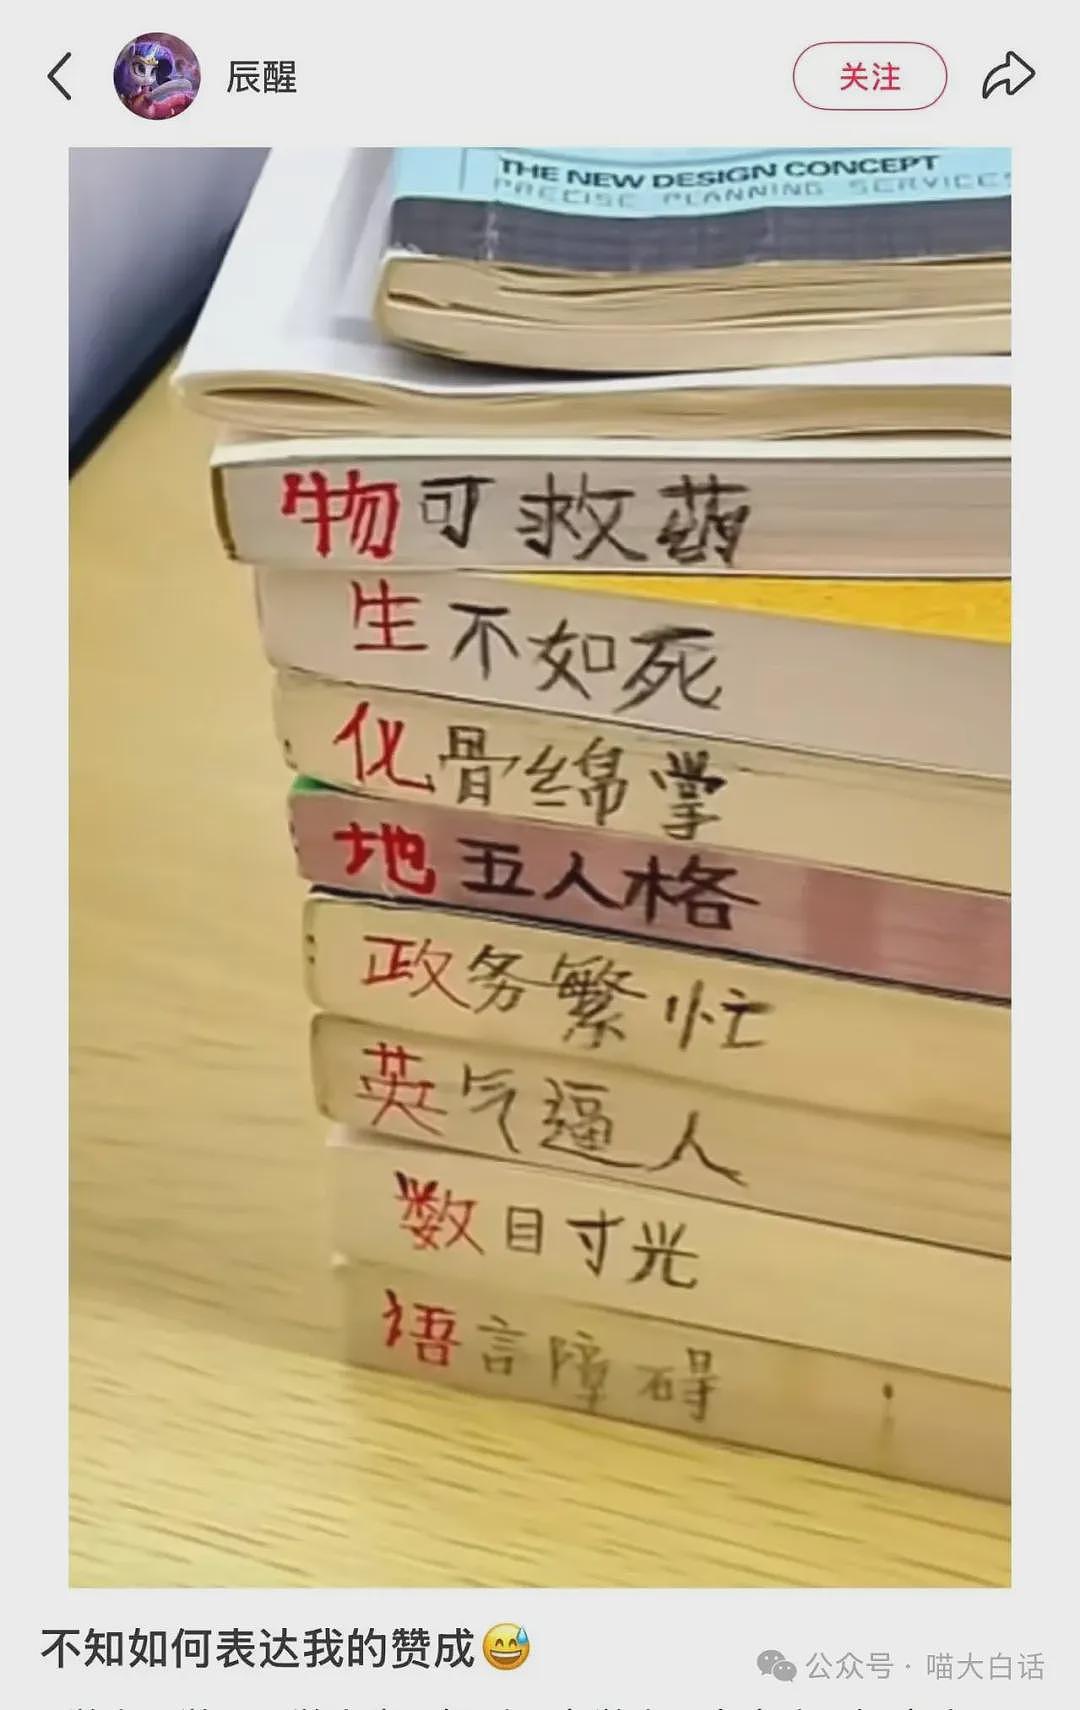 辰醒
关注
THE NEW DESIGN CONCEPT
PRECISE PLANNING SERVICES
物可救药
生不如死
化骨绵掌
地五人格
政务繁忙
英气逼人
数目寸光
语言障碍
不知如何表达我的赞成😅
公众号 · 喵大白话